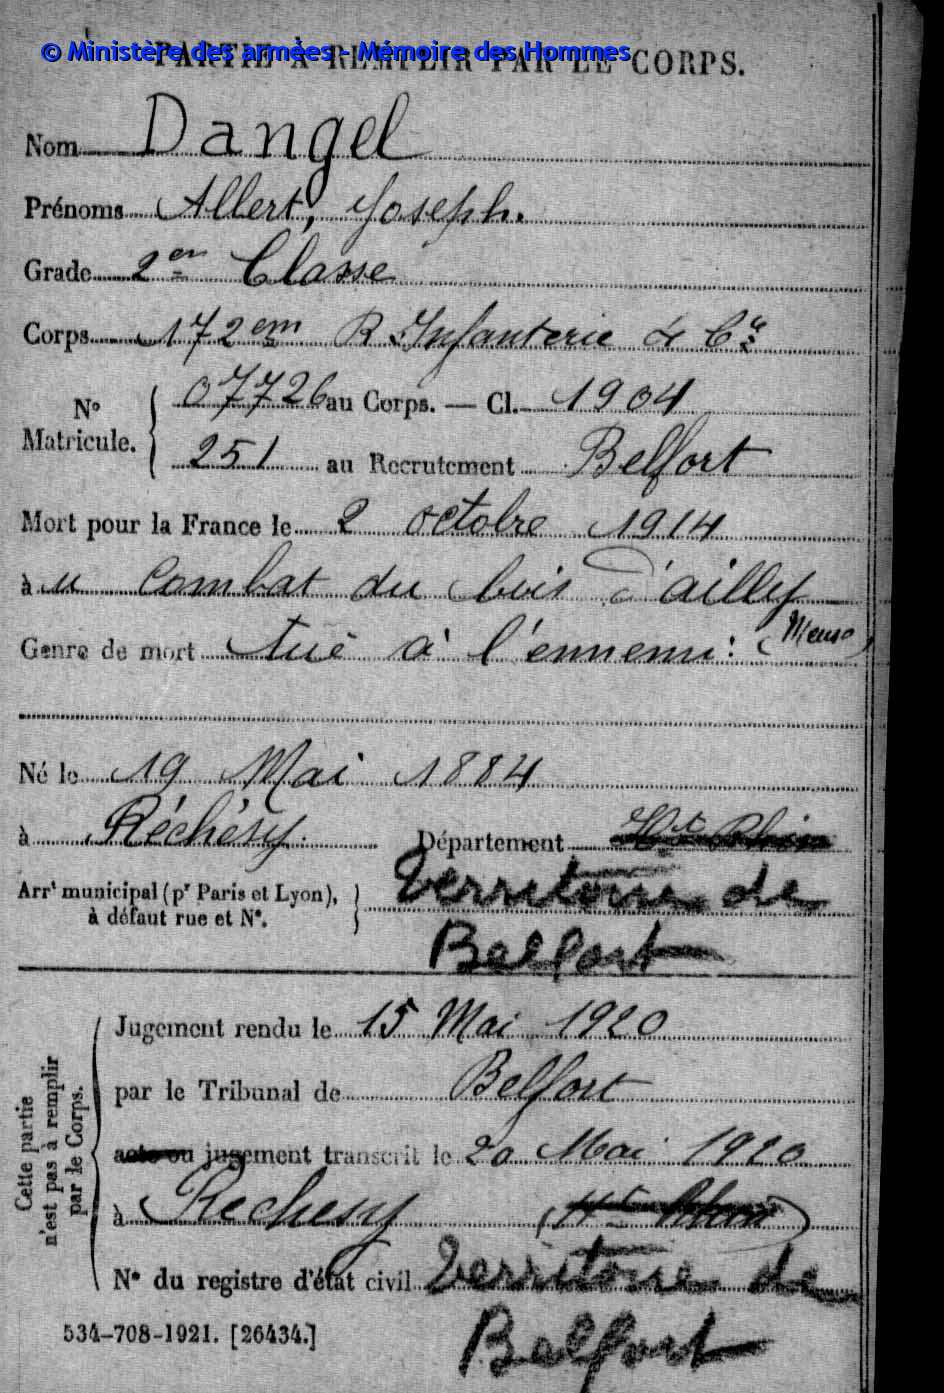 © Ministère des armées - Mémoire des Hommes
PARTIE À REMPLIR PAR LE CORPS.
Nom Dangel
Prénoms Albert, Joseph.
Grade 2em Classe
Corps 172em R Infanterie 4 Cie
N° Matricule. 07726 au Corps. — Cl. 1904
251 au Recrutement Belfort
Mort pour la France le 2 octobre 1914
à u Combat du bois d'ailly
(Meuse)
Genre de mort tué à l'ennemi :
Né le 19 Mai 1884
à Réchésy Département Ht Rhin
Territoire de
Belfort
Arrt municipal (pr Paris et Lyon),
à défaut rue et N°.
Cette partie
n'est pas à remplir
par le Corps.
Jugement rendu le 15 Mai 1920
par le Tribunal de Belfort
acte ou jugement transcrit le 20 Mai 1920
à Rechesy (Ht Rhin)
N° du registre d'état civil Territoire de
Belfort
534-708-1921. [26434.]